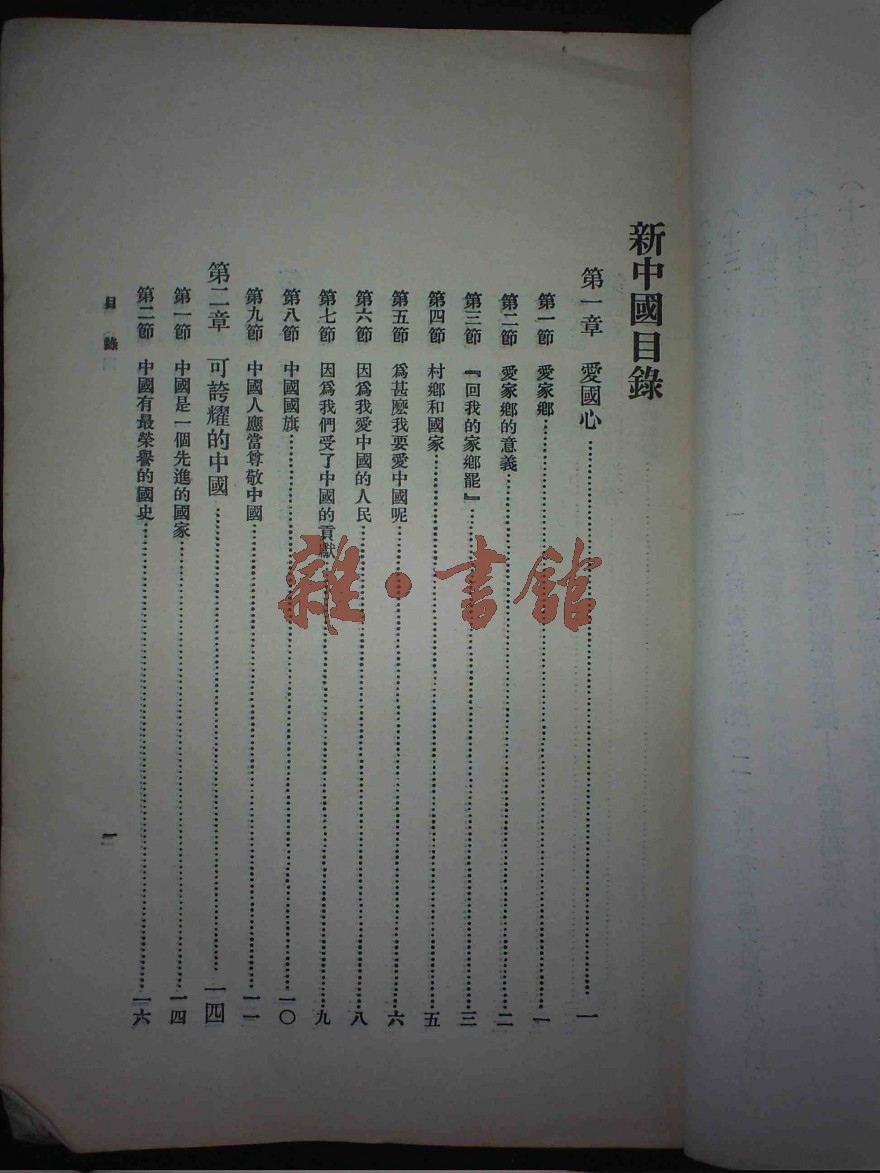 新中國目錄
第一章 愛國心……一
第一節 愛家鄉……一
第二節 愛家鄉的意義……二
第三節 『回我的家鄉罷』……三
第四節 村鄉和國家……五
第五節 爲甚麽我要愛中國呢……六
第六節 因爲我愛中國的人民……八
第七節 因爲我們受了中國的貢獻……九
第八節 中國國旗……一〇
第九節 中國人應當尊敬中國……一一
第二章 可誇耀的中國……一四
第一節 中國是一個先進的國家……一四
第二節 中國有最榮譽的國史……一六
目錄
一
雜·書館